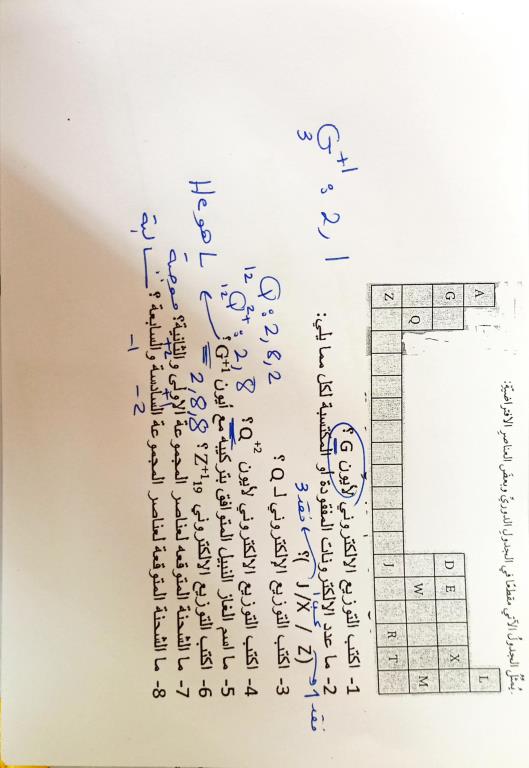 يمثل الجدول الآتي مقطعًا في الجدول الدوري وبعض العناصر الافتراضية:
A L
G D E X
Q W M
Z J R T
1- اكتب التوزيع الإلكتروني لأيون G ؟
2- ما عدد الالكترونات المفقودة او المكتسبة لكل مما يلي:
(J /X / Z)؟
فقد 3
فقد 1
3- اكتب التوزيع الإلكتروني لـ Q ؟
4- اكتب التوزيع الالكتروني لأيون Q+2 ؟
5- ما اسم الغاز النبيل المتوافق بتركيبه مع أيون G+1 ؟
6- اكتب التوزيع الالكتروني 19Z+1 ؟ 2,8,8
7- ما الشحنة المتوقعه لعناصر المجموعة الاولى والثانية؟ موجبة
+1 +2
8- ما الشحنة المتوقعة لعناصر المجموعة السادسة والسابعة؟ سالبة
-2 -1
3G+1 : 2,1
Q : 2,8,2
12Q2+ : 2,8
He هو L